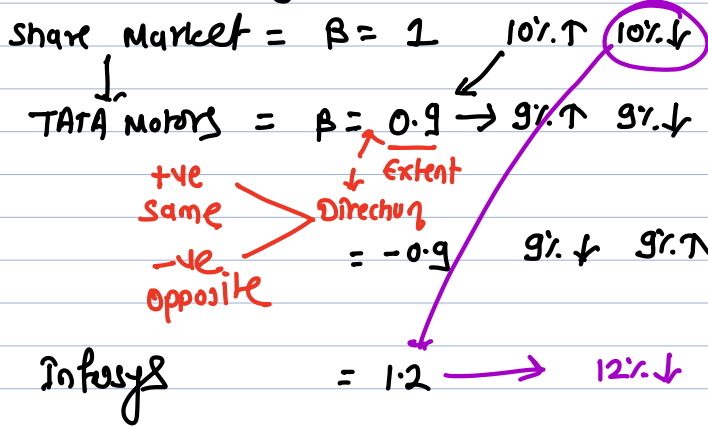 Share Market = β = 1 10%↑ 10%↓
↓
TATA Motors = β = 0.9 → 9%↑ 9%↓
+ve Extent
Same Direction
= -0.9 9%↓ 9%↑
-ve
opposite
Infosys = 1.2 → 12%↓